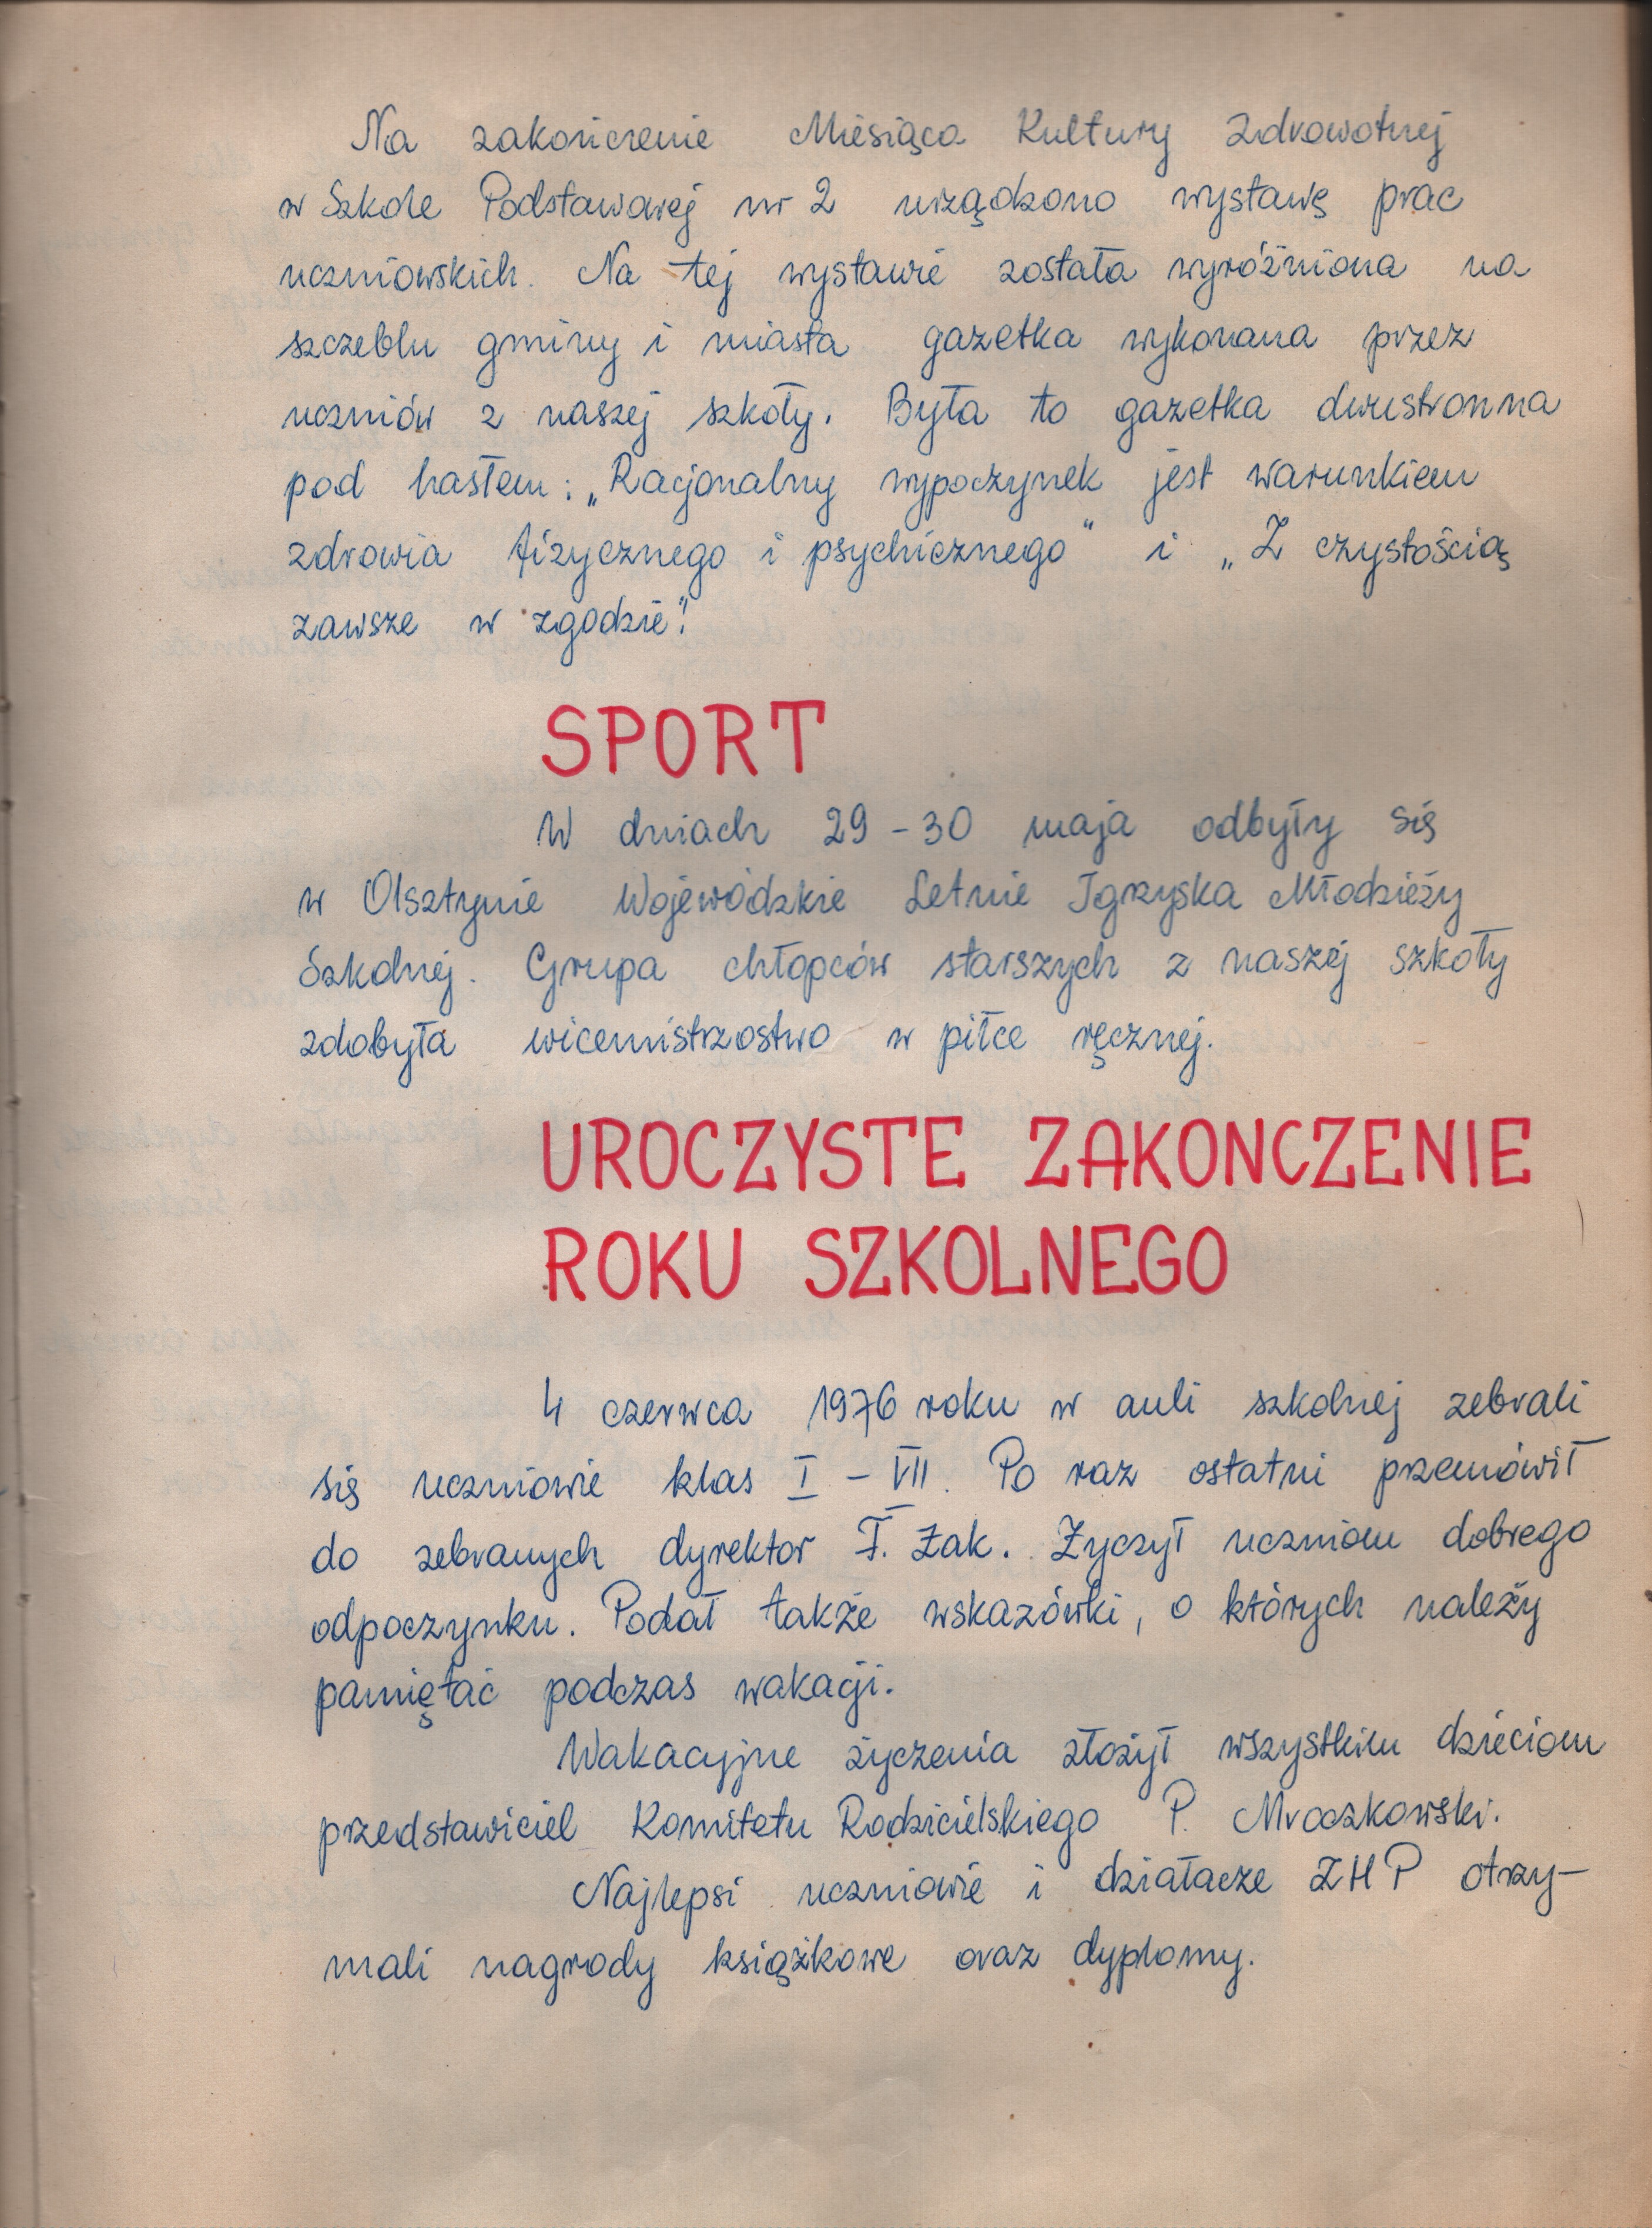 Na zakończenie Miesiąca Kultury Zdrowotnej
w Szkole Podstawowej nr 2 urządzono wystawę prac
uczniowskich. Na tej wystawie została wyróżniona na
szczeblu gminy i miasta gazetka wykonana przez
uczniów z naszej szkoły. Była to gazetka dwustronna
pod hasłem: „Racjonalny wypoczynek jest warunkiem
zdrowia fizycznego i psychicznego" i „Z czystością
zawsze w zgodzie".
SPORT
W dniach 29-30 maja odbyły się
w Olsztynie Wojewódzkie Letnie Igrzyska Młodzieży
Szkolnej. Grupa chłopców starszych z naszej szkoły
zdobyła wicemistrzostwo w piłce ręcznej.
UROCZYSTE ZAKONCZENIE
ROKU SZKOLNEGO
4 czerwca 1976 roku w auli szkolnej zebrali
się uczniowie klas I - VII. Po raz ostatni przemówił
do zebranych dyrektor F. Żak. Życzył uczniom dobrego
odpoczynku. Podał także wskazówki, o których należy
pamiętać podczas wakacji.
Wakacyjne życzenia złożył wszystkim dzieciom
przedstawiciel Komitetu Rodzicielskiego P. Mroczkowski.
Najlepsi uczniowie i działacze ZHP otrzy-
mali nagrody książkowe oraz dyplomy.